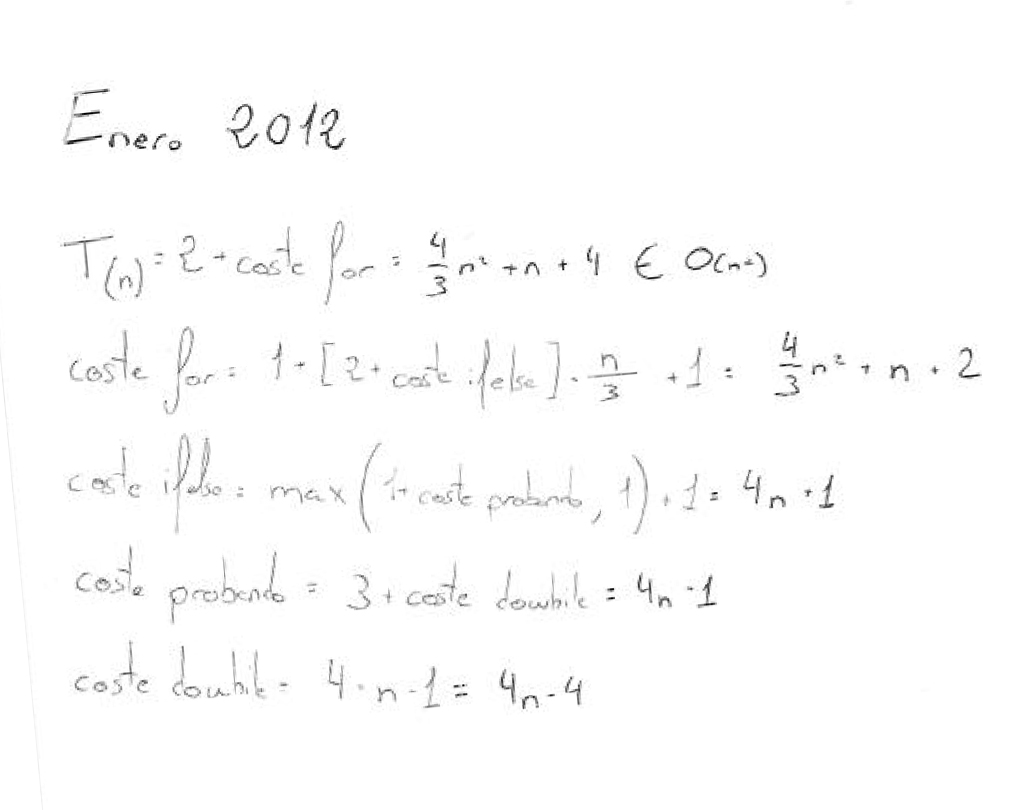 Enero 2012
T(n) = 2 + coste for = 4/3 n² + n + 4 ∈ O(n²)
coste for = 1 + [2 + coste ifelse] · n/3 + 1 = 4/3 n² + n + 2
coste ifelse = max (1 + coste probando, 1) + 1 = 4n + 1
coste probando = 3 + coste dowhile = 4n - 1
coste dowhile = 4 · n - 1 = 4n - 4